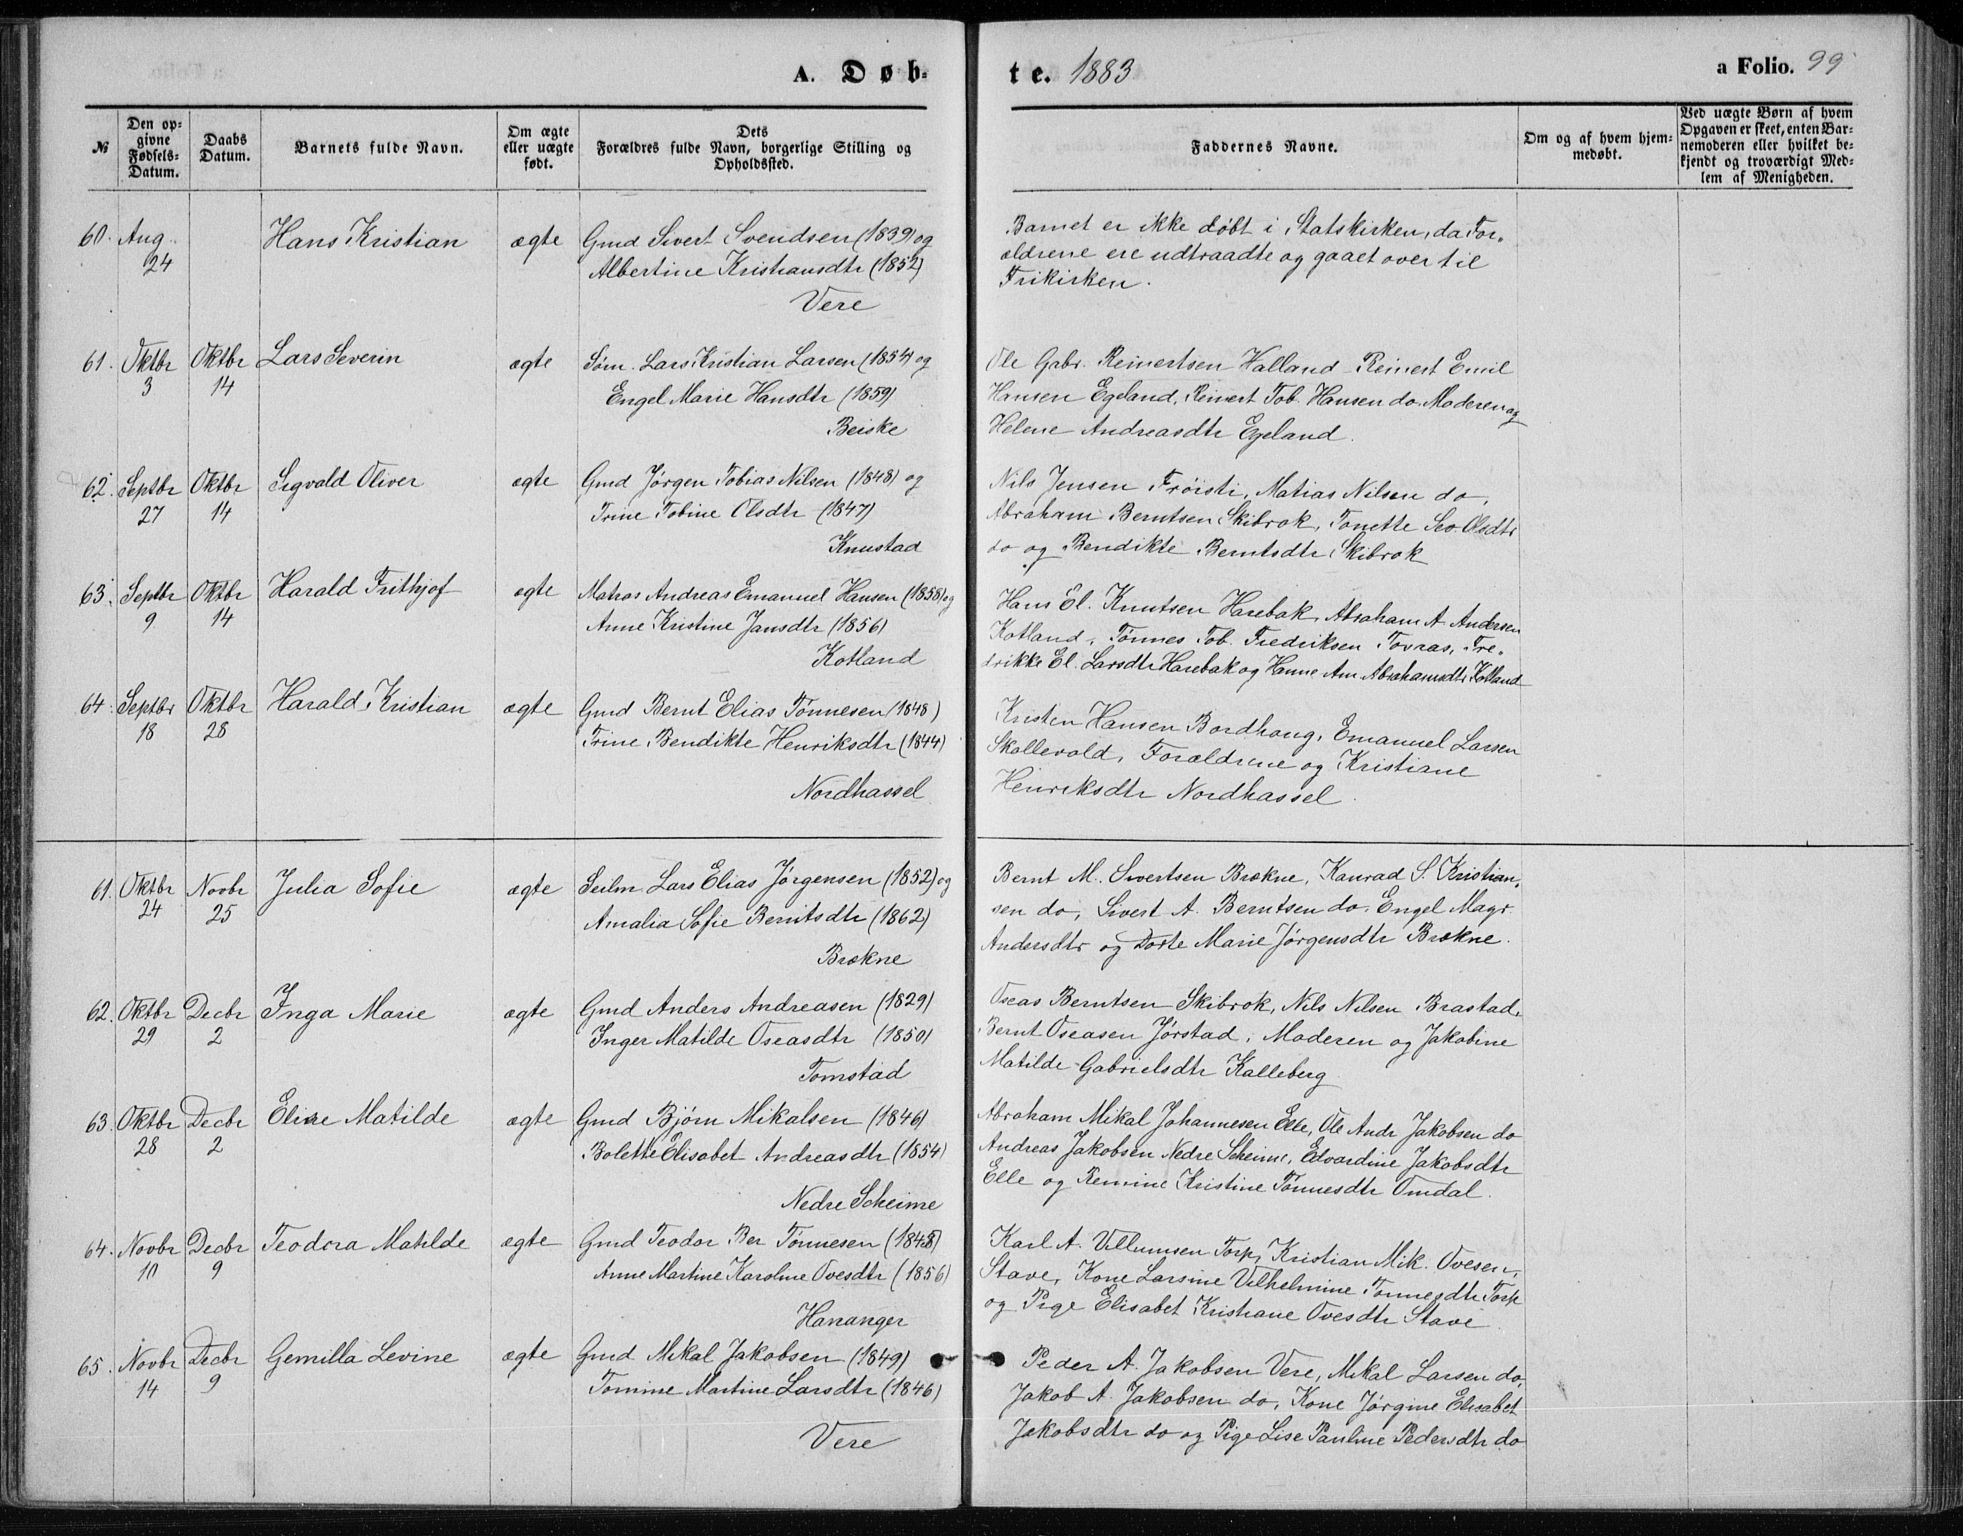 A. Døb-
te. 1883
a Folio. 99
№
Den op-
givne
Fødsels-
Datum.
Daabs
Datum.
Barnets fulde Navn.
Om ægte
eller uægte
født.
Dets
Forældres fulde Navn, borgerlige Stilling og
Opholdssted.
Faddernes Navne.
Om og af hvem hjem-
medøbt.
Ved uægte Børn af hvem
Opgaven er skeet, enten Bar-
nemoderen eller hvilket be-
kjendt og troværdigt Med-
lem af Menigheden.
60. Aug. 24 Hans Kristian ægte
Gmd Sivert Svendsen (1839) og
Albertine Kristiansdtr (1852)
Vere
Barnet er ikke døbt i Statskirken, da For-
ældrene ere udtraadte og gaaet over til
Frikirken.
61. Oktbr 3 Oktbr 14 Lars Severin ægte
Søm. Lars Kristian Larsen (1854) og
Engel Marie Hansdtr (1859)
Beiske
Ole Gabr. Reinertsen Halland Reinert Emil
Hansen Egeland, Reinert Tob. Hansen do. Moderen og
Helene Andreasdtr Egeland.
62. Septbr 27 Oktbr 14 Sigvald Oliver ægte
Gmd Jørgen Tobias Nilsen (1848) og
Trine Tobine Olsdtr (1847)
Knustad
Nils Jensen Frøisti, Matias Nilsen do,
Abraham Berntsen Skibrok, Tonette Sev. Olsdtr
do og Bendikte Berntsdtr Skibrok
63. Septbr 9 Oktbr 14 Harald Frithjof ægte
Matros Andreas Emanuel Hansen (1858) og
Anne Kristine Jansdtr (1856)
Kotland
Hans El. Knutsen Harebak, Abraham A. Andersen
Kotland, Tønnes Tob. Fredriksen Tovras, Fre-
drikke El. Larsdtr Harebak og Hanne Am Abrahamsdtr Kotland
64. Septbr 18 Oktbr 28 Harald Kristian ægte
Gmd Bernt Elias Tønnesen (1848)
Trine Bendikte Henriksdtr (1844)
Nordhassel
Kristen Hansen Bordhoug, Emanuel Larsen
Skollevold, Forældrene og Kristiane
Henriksdtr Nordhassel.
61. Oktbr 24 Novbr 25 Julia Sofie ægte
Seilm Lars Elias Jørgensen (1852) og
Amalia Sofie Berntsdtr (1862)
Brækne
Bernt M. Sivertsen Brækne, Konrad S. Kristian-
sen do, Sivert A. Berntsen do. Engel Magr.
Andersdtr og Dorte Marie Jørgensdtr Brækne.
62. Oktbr 29 Decbr 2 Inga Marie ægte
Gmd Anders Andreasen (1829)
Inger Matilde Oseasdtr (1850)
Tomstad
Oseas Berntsen Skibrok, Nils Nilsen Brastad,
Bernt Oseasen Jørstad, Moderen og Jakobine
Matilde Gabrielsdtr Kalleberg
63. Oktbr 28 Decbr 2 Elise Matilde ægte
Gmd Bjørn Mikalsen (1846)
Bolette Elisabet Andreasdtr (1854)
Nedre Scheime
Abraham Mikal Johannesen Elle, Ole Andr Jakobsen do
Andreas Jakobsen Nedre Scheime, Edvardine Jakobsdtr
Elle og Remine Kristine Tønnesdtr Omdal.
64. Novbr 10 Decbr 9 Teodora Matilde ægte
Gmd Teodor Ber Tønnesen (1848)
Anne Martine Karoline Ovesdtr (1856)
Hananger
Karl A. Villumsen Torp, Kristian Mik. Ovesen,
Stave, Kone Larsine Vilhelmine Tønnesdtr Torp
og Pige Elisabet Kristiane Ovesdtr Stave
65. Novbr 14 Decbr 9 Gemilla Levine ægte
Gmd Mikal Jakobsen (1849)
Tomine Martine Larsdtr (1846)
Vere
Peder A. Jakobsen Vere, Mikal Larsen do,
Jakob A. Jakobsen do, Kone Jørgine Elisabet
Jakobsdtr do og Pige Lise Pauline Pedersdtr do